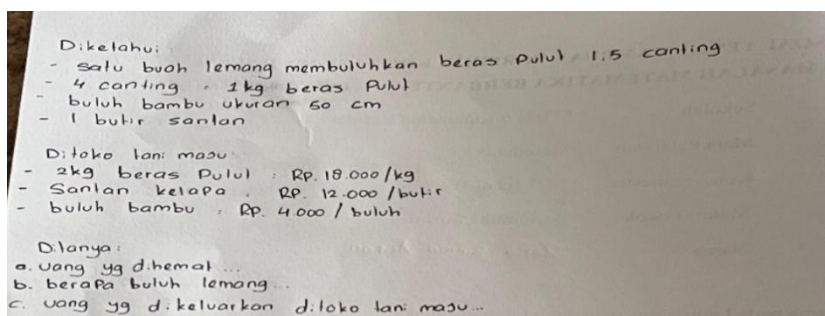 Diketahui:
- satu buah lemang membutuhkan beras Pulut 1,5 canting
- 4 canting = 1kg beras Pulut
- buluh bambu ukuran 50 cm
- 1 butir santan
Di toko tani maju:
- 2kg beras Pulut : RP. 18.000 /kg
- Santan kelapa : RP. 12.000 /butir
- buluh bambu : RP. 4.000 / buluh
Ditanya:
a. uang yg dihemat ...
b. beraPa buluh lemang...
c. uang yg dikeluarkan ditoko tani maju...